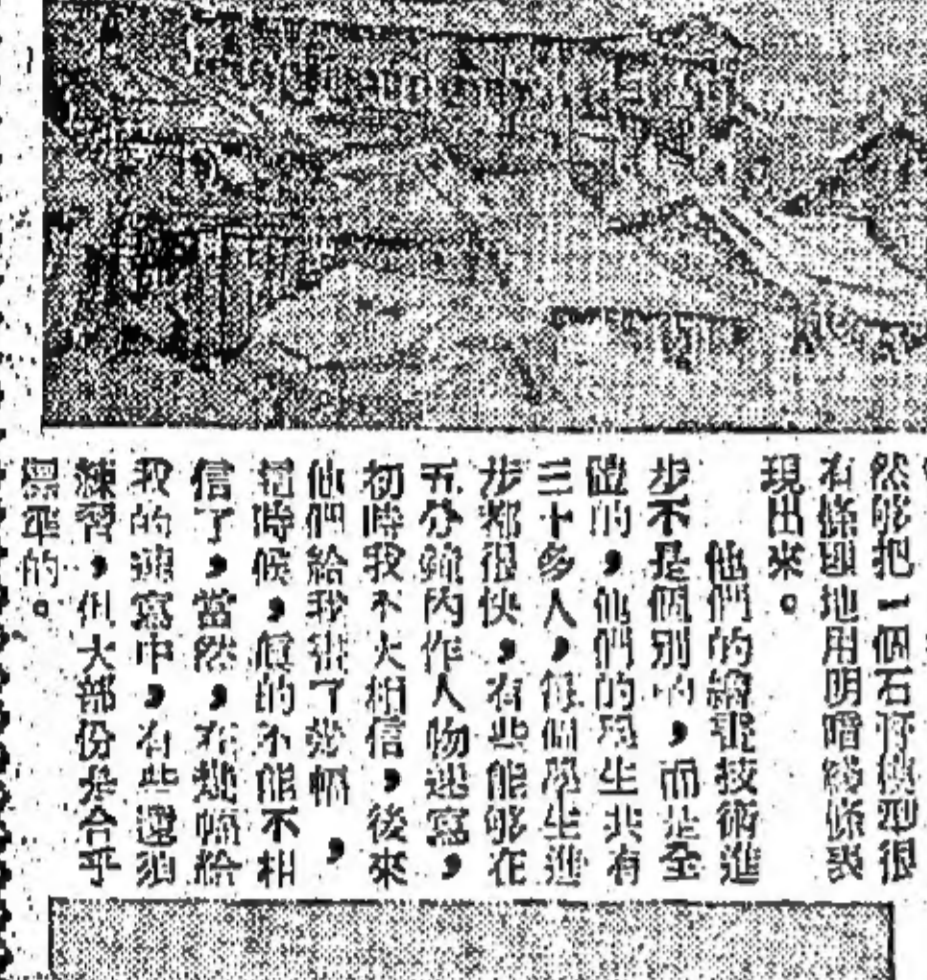 然能把一個石膏模型很
有條理地用明暗線條表
現出來。
他們的繪畫技術進
步不是個別的,而是全
體的,他們的學生共有
三十多人,每個學生進
步都很快,有些能够在
五分鐘內作人物速寫,
初時我不大相信,後來
他們給我畫了幾幅,
這時候,真的不能不相
信了,當然,在幾幅給
我的速寫中,有些還須
練習,但大部份是合乎
標準的。